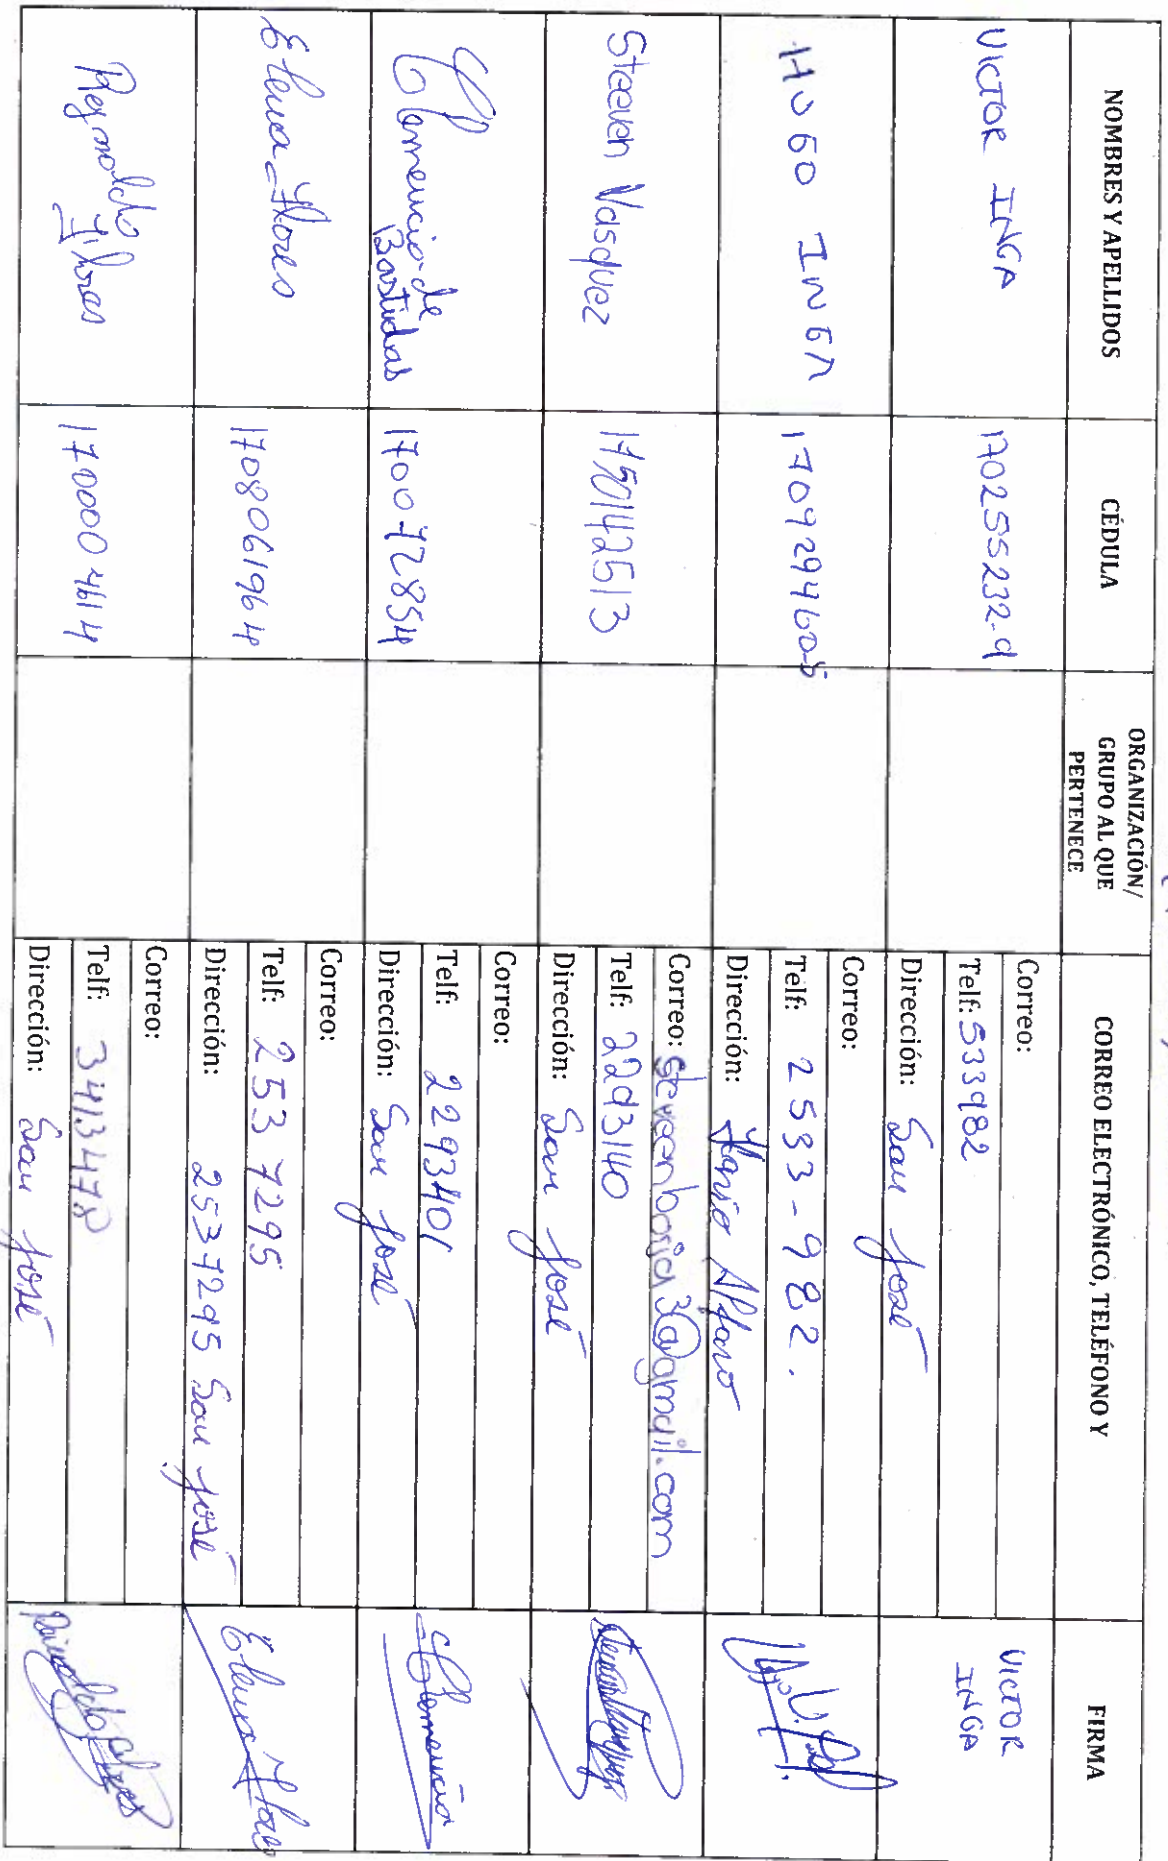 NOMBRES Y APELLIDOS
CÉDULA
ORGANIZACIÓN/
GRUPO AL QUE
PERTENECE
CORREO ELECTRÓNICO, TELÉFONO Y
FIRMA
VICTOR INGA
170255232-9
Correo:
Telf: 533982
Dirección: San José
VICTOR
INGA
HUGO INGA
170929460-5
Correo:
Telf: 2533-982.
Dirección: Alfaro
Steeven Vasquez
1750142513
Correo: steveenborja3@gmail.com
Telf: 2293140
Dirección: San José
Clemencia de
Bastidas
170072854
Correo:
Telf: 2293401
Dirección: San José
Clemencia
Elena Flores
1708061964
Correo:
Telf: 2537295
Dirección: 2537295 San José
Elena Flores
Reynaldo
Flores
1700004614
Correo:
Telf: 3413478
Dirección: San José